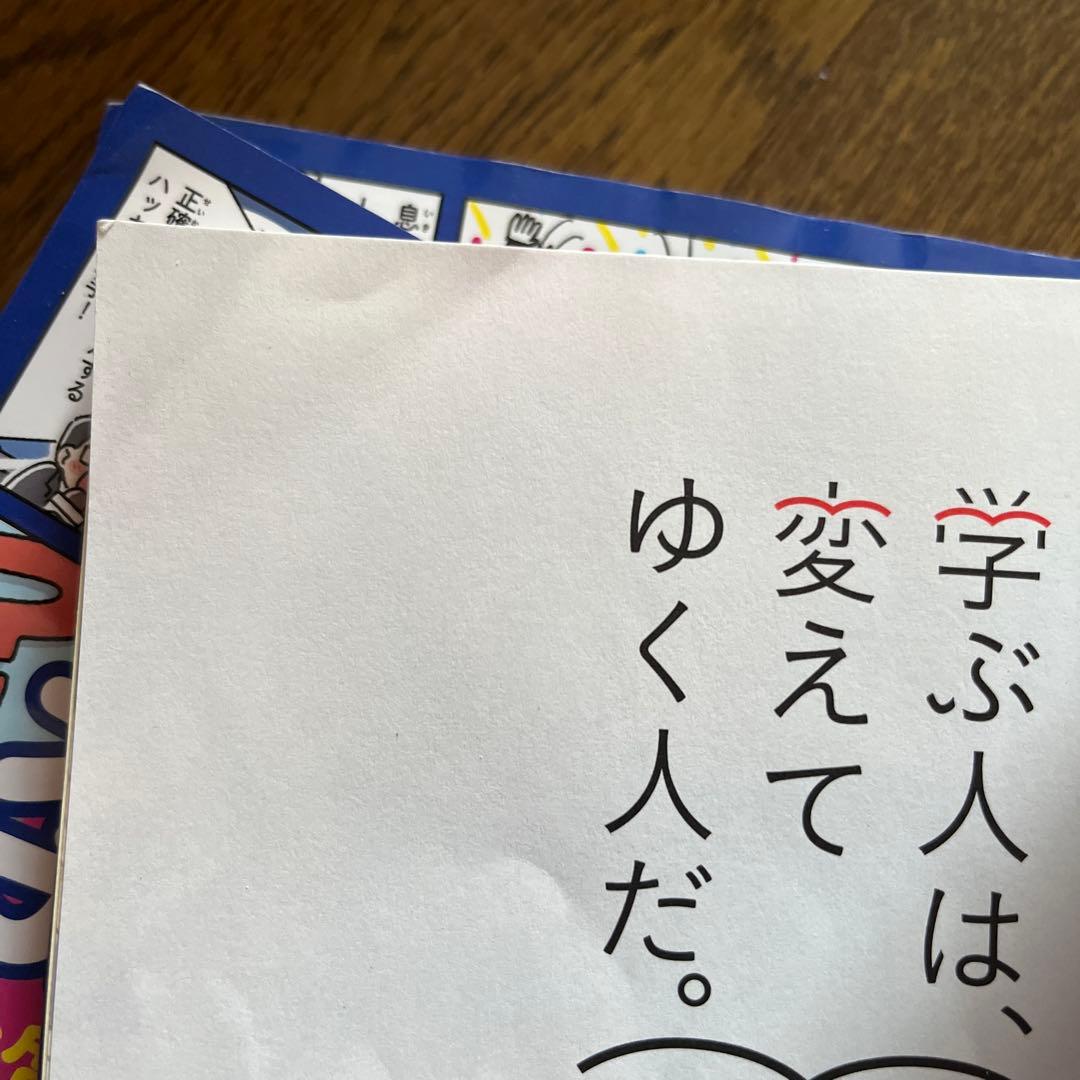 学ぶ人は、
変えて
ゆく人だ。
正確
ハッ
息